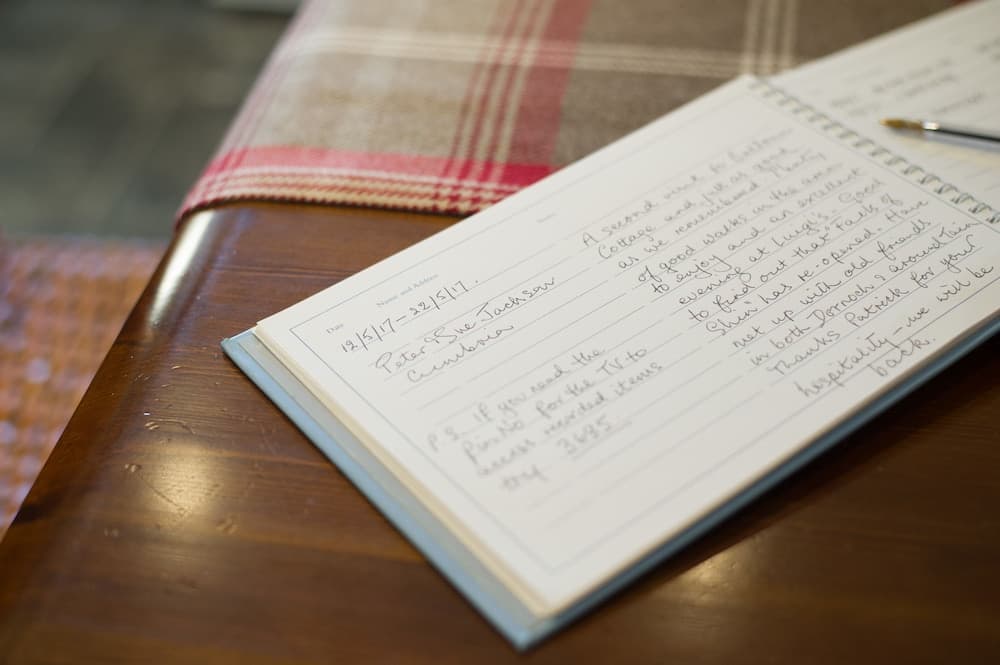 Date
Name and Address
12/5/17 – 22/5/17.
Peter & Sue Jackson
Cumbria
P.S. If you need the
Pin No for the TV to
access recorded items
try 3685
A second visit to
Cottage and felt as good
as we remembered. Plenty
of good walks in the area
to enjoy and an excellent
evening at Luigi's – Good
to find out that Falls of
Shin has re-opened. Have
met up with old friends
in both Dornoch & around Tain
Thanks Patrick for your
hospitality – we will be
back.